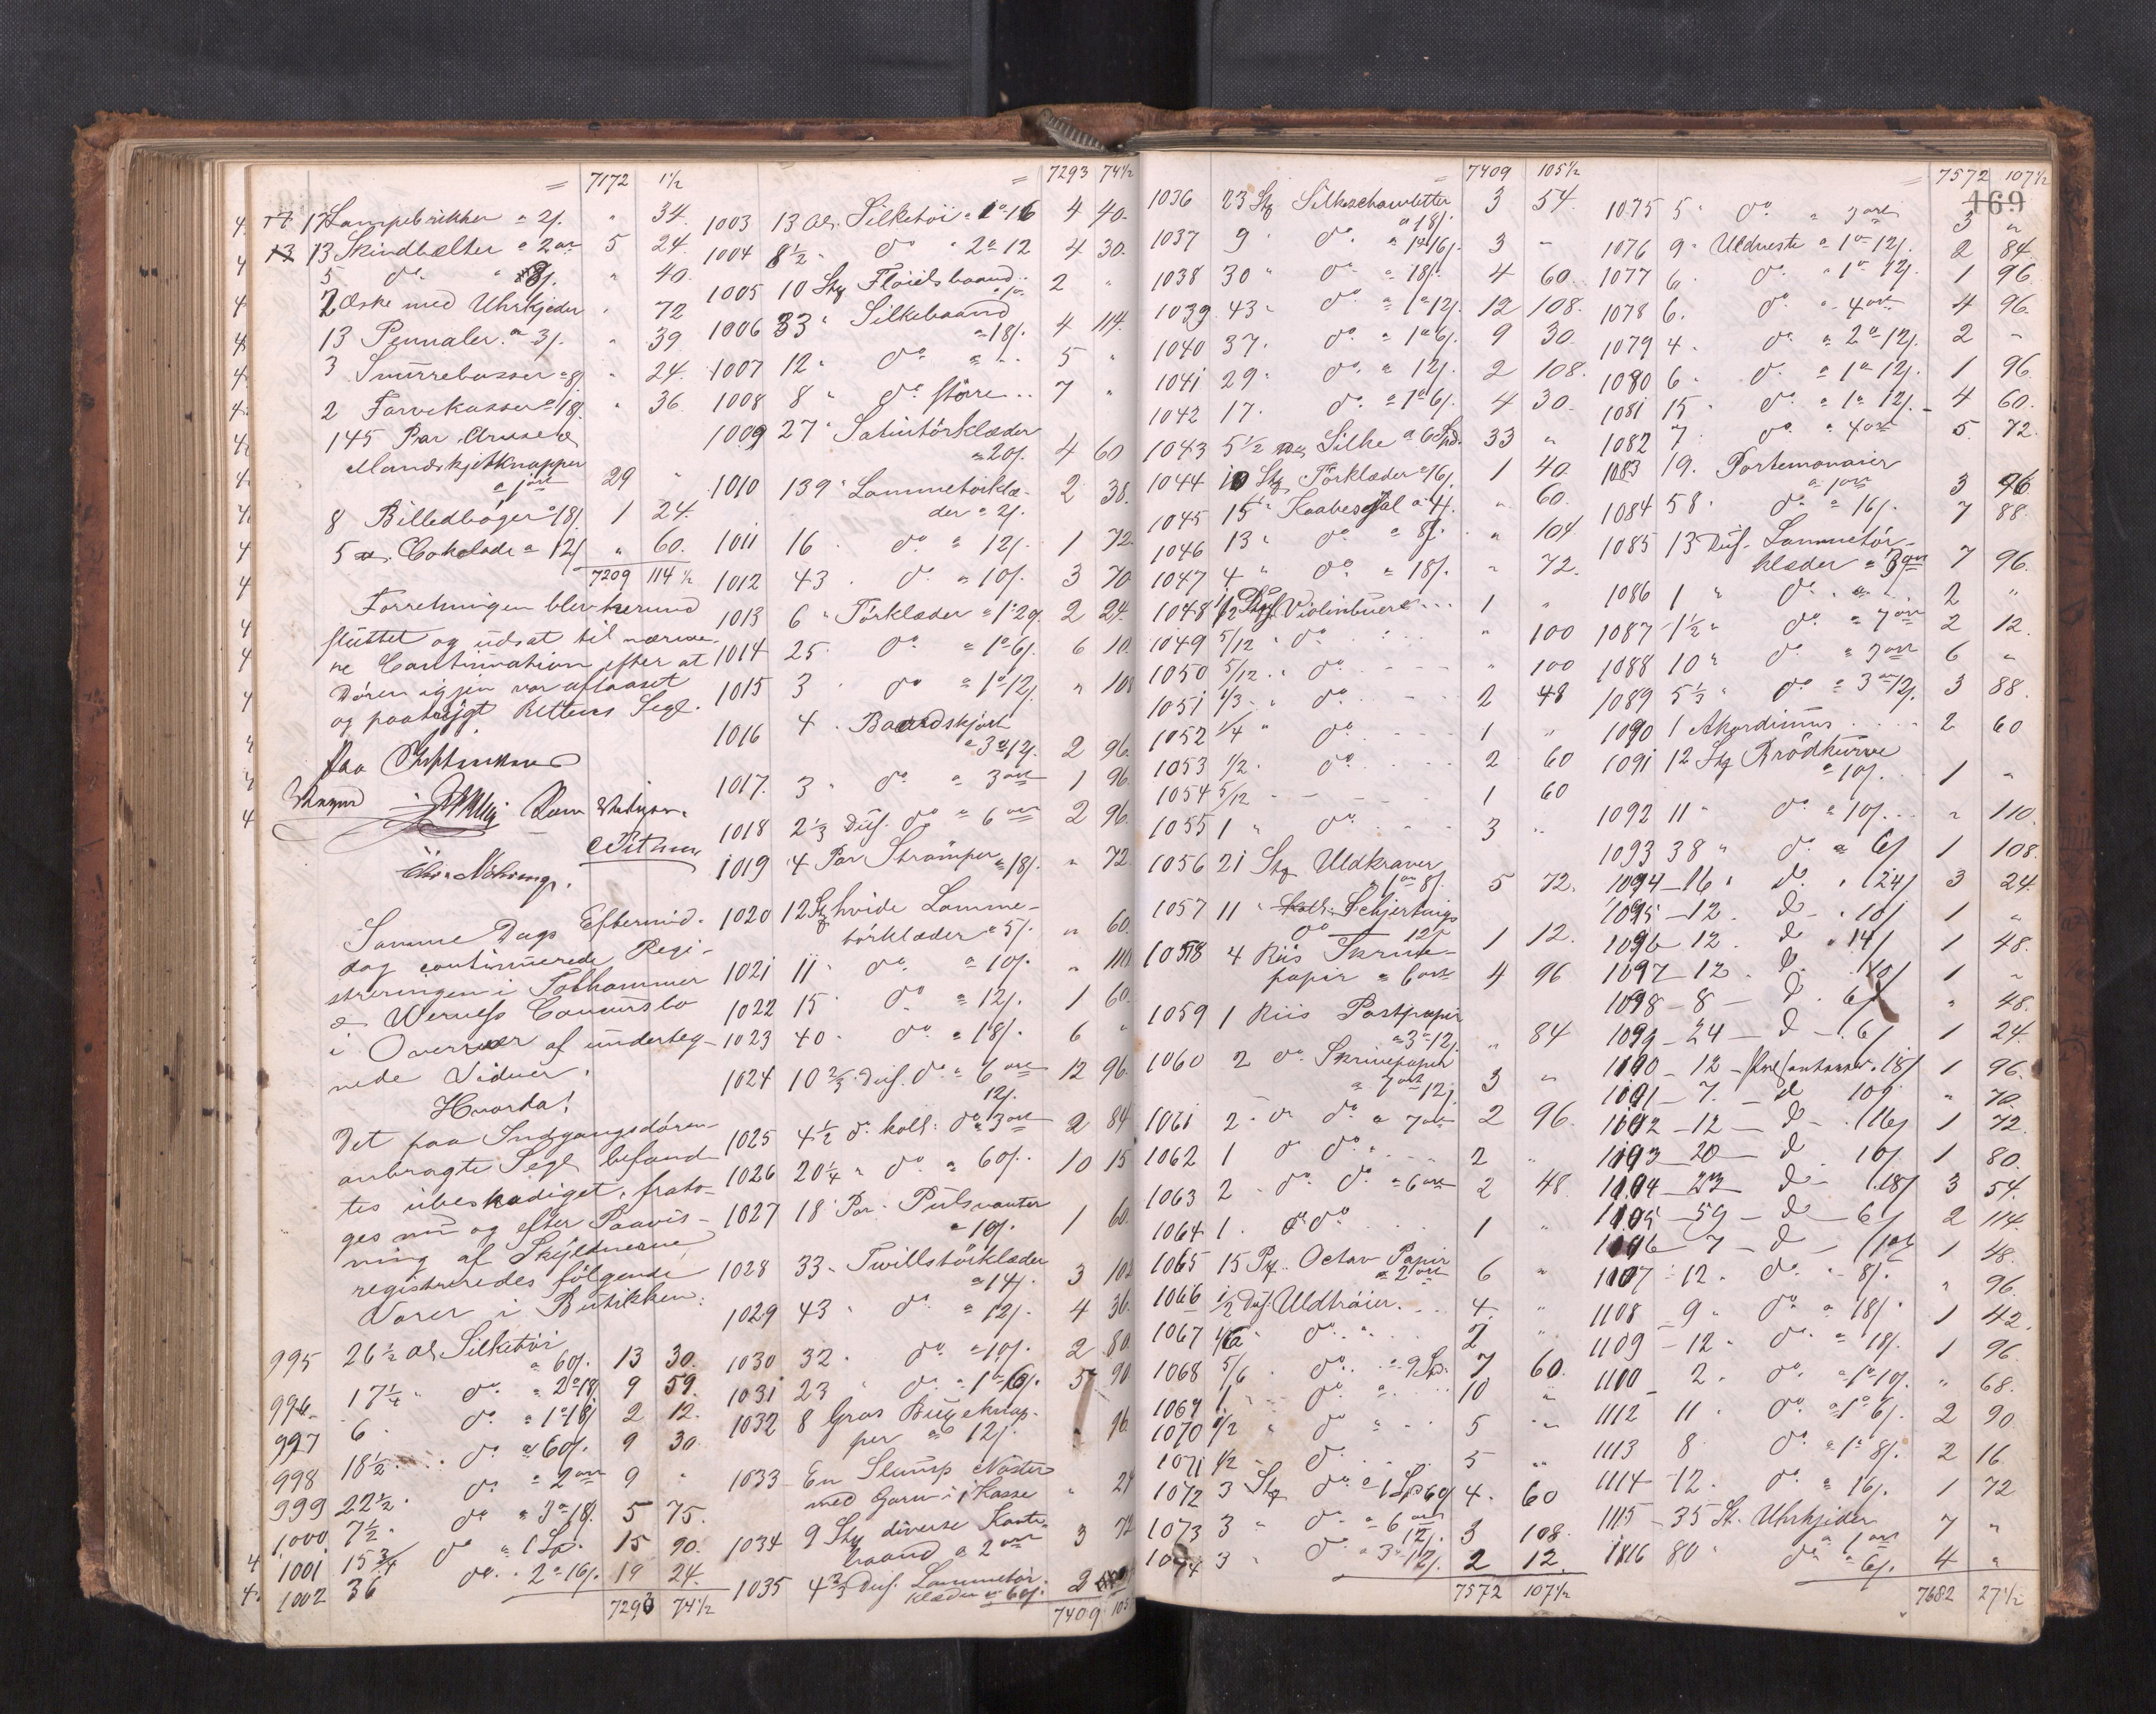 = 7172 1½
17 Lampebrikker a 2/. " 34.
13 Skindbælter a 2 ort 5 24.
5 do " 8/. " 40.
2 Æske med Uhrkjeder " 72
13 Pennaler a 3/. " 39
3 Snurrebasser a 8/ " 24.
2 Farvekasser a 18/. " 36
145 Par
Mandskjortknapper
a 1 ort 29 "
8 Billedbøger a 18/. 1 24.
5 Cokolade a 12/ " 60.
7209 114½
Forretningen blev herved
sluttet og udsat til nærme-
re Continuation efter at
Døren igjen var aflaaset
og paatrÿgt Rettens Segl.
Samme Dags Eftermid-
dag continuerede Regi-
streringen i
i Overvær af underteg-
nede Vidner.
Hvorda!
Det paa Indgangsdøren
anbragte Segl befand-
tes ubeskadiget, frato-
ges nu og efter Paavis-
ning af Skyldnerne
registreredes følgende
Varer i Butikken:
995 26½ al. Silketøi
a 60/. 13 30.
996 17¼ " do a 2 a 18/ 9 59.
997 6 " do a 1 a 18/ 2 12.
998 18½ " do a 60/. 9 30.
999 22½ " do a 2 ort 9 "
1000 7½ " do a 3 a 18/. 5 75.
1001 15¾ do a 1 Sp. 15 90.
1002 36 do. a 2 a 16/. 19 24.
7293 74½
= 7293 74½
1003 13 al. Silketøi a 1 a 16 4 40.
1004 8½ " do a 2 a 12 4 30.
1005 10 Stk Fløielsbaand
a 1 ort 2 "
1006 33 " Silkebaand
a 18/. 4 114.
1007 12 " do a " 5 "
1008 8 " do større .. 7 "
1009 27 " Satintørklæder
a 20/. 4 60
1010 139 " Lommetørklæ-
der a 2/. 2 38.
1011 16 " do a 12/. 1 72
1012 43 " do a 10/. 3 70
1013 6 " Tørklæder a 1 a 2/. 2 24.
1014 25 " do a 1 a 6/. 6 10
1015 3 " do a 1 a 12/. " 108
1016 4 "
a 3 a 12/. 2 96.
1017. 3 " do a 3 ort 1 96.
1018 2⅓ Dus. do a 6 ort 2 96.
1019 4 Par Strømper a 18/. " 72
1020 12 Stk hvide Lomme-
tørklæder a 5/. " 60.
1021 11 " do a 10/. " 110
1022 15 " do a 12/. 1 60
1023 40 " do a 18/. 6 "
1024 10⅔ Dus. do a 6 ort
12/. 12 96.
1025 4½ do kolt: do a 3 ort 2 84
1026 20¼ " do a 60/. 10 15
1027 18 Par Pulsvanter
a 10/. 1 60.
1028 33 " Twillstørklæder
a 14/. 3 102
1029 43 " do a 12/. 4 36.
1030 32 " do a 10/. 2 80.
1031 23 " do a 1 a 6/. 5 90
1032 8 Gros Buxeknap-
per a 12/. " 96
1033 En Slump Nøster
med Garn i 1 Kasse " 24
1034 9 Stk diverse Kante-
baand a 2 ort 3 72
1035 4⅔ Dus. Lommetør-
klæder a 60/. 2
7409 105½
= 7409 105½
1036 23 Stk
a 18/. 3 54.
1037 9 " do a 1 a 16/. 3 "
1038 30 " do a 18/. 4 60.
1039 43 " do a 1 a 12/. 12 108.
1040 37 " do a 1 a 6/. 9 30.
1041 29 " do a 12/. 2 108.
1042 17 " do a 1 a 6/. 4 30.
1043 5½ Silke a 6 Spd. 33 "
1044 10 Stk Tørklæder a 16/. 1 40.
1045 15 " a 4/. " 60.
1046 13 " do a 8/. " 104.
1047 4 " do a 18/. " 72.
1048 ½ Dus. Violinbuer ... 1 "
1049 5/12 " do " 100
1050 5/12 " do " 100
1051 ⅓ " do 2 48
1052 ¼ " do 1 "
1053 ½ " do 2 60
1054 5/12 - - 1 60
1055 1 " do 3 "
1056 21 Stk Uldkraver
a 1 ort 8/. 5 72.
1057 11 " Schjertings
do 12/. 1 12.
1058 4 Riis Skrive-
papir a 6 ort 4 96
1059 1 Riis Postpapir
a 3 a 12/. " 84
1060 2 do Skrivepapir
a 7 ort 12/. 3 "
1061 2 do do a 7 ort 2 96.
1062 1 do do " 2 "
1063 2 " do do a 6 ort 2 48.
1064 1. do do 1 "
1065 15 Pk. Octav Papir
a 2 ort 6 "
1066 ½ Dus. Uldtrøier. 4 "
1067 do " 2 "
1068 5/6 " do a 9 Sp. 7 60.
1069 1 " do " 10 "
1070 ½ " do " 5 "
1071 ½ " do 5 "
1072 3 Stk do a 1 Sp 60/ 4. 60
1073 3 " do a 6 ort
12/. 3 108.
1074 3 do a 3 a 12/. 2 12.
7572 107½
= 7572 107½
169
1075 5 " do a 3 ort 3 "
1076 9 " Uldveste a 1 ort 12/. 2 84.
1077 6 do a 1 a 12/. 1 96.
1078 6. do a 4 ort 4 96.
1079 4 " do a 2 a 12/. 2 "
1080 6 " do a 1 a 12/. 1 96
1081 15 " do a 1 a 12/. 4 60.
1082 7 do a 4 ort 5. 72.
1083 19. Portemonaier
a 1 ort 3 96
1084 58 " do a 16/. 7 88.
1085 13 Dus. Lommetør-
klæder a 3 ort 7 96.
1086 1 " do 2 "
1087 1½ " do a 7 ort 2 12.
1088 10 " do a 3 ort 6 "
1089 5⅓ " do a 3 a 12/. 3 88.
1090 1 Akordinus 2 60
1091 12 Stk Brødkurve
a 10/. 1 "
1092 11 " do a 10/. " 110.
1093 38 " do a 6/ 1 108.
1094 - 16 " do " 24/ 3 24.
1095 - 12 " d " 10/ 1 "
1096 12 " d " 14/ 1 48.
1097 - 12 " d 10/ 1 "
1098 - 8 - d " 6/ " 48.
1099 - 24 - d - 6/ 1 24.
1100 - 12 - 18/ 1 96.
1101 - 7. - d 10/ " 70.
1102 - 12 - d - 16/ 1 72.
1103 - 20 - d 10/ 1 80.
1104 - 23 d - 18/ 3 54.
1105 - 59 - d - 6/ 2 114.
1106 - 7 - d 1 48.
1107 - 12 " do " 8/. " 96.
1108 9 " do a 18/. 1 42.
1109 - 12 " do a 18/. 1 96.
1100 2 " do a 1 a 10/. " 68.
1112 11 " do a 1 a 6/. 2 90
1113 8 do a 1 a 8/. 2 16.
1114 - 12 " do a 16/. 1 72
1115 - 35 St. Uhrkjeder
a 1 ort 7 "
1116 80 " do a 6/. 4 "
7682 27½